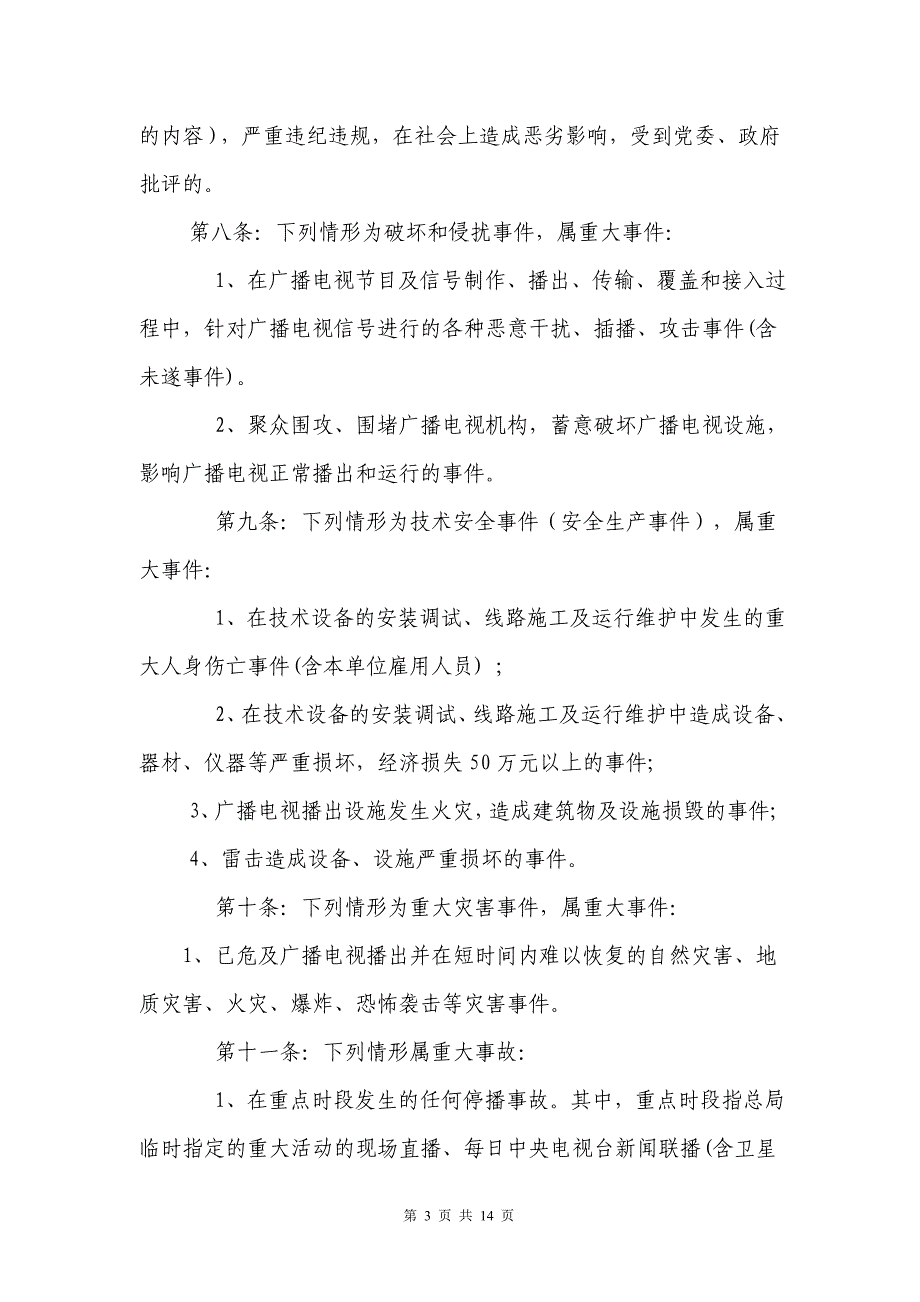 的内容)，严重违纪违规，在社会上造成恶劣影响，受到党委、政府
批评的。
第八条：下列情形为破坏和侵扰事件，属重大事件：
1、在广播电视节目及信号制作、播出、传输、覆盖和接入过
程中，针对广播电视信号进行的各种恶意干扰、插播、攻击事件(含
未遂事件)。
2、聚众围攻、围堵广播电视机构，蓄意破坏广播电视设施，
影响广播电视正常播出和运行的事件。
第九条：下列情形为技术安全事件（安全生产事件），属重
大事件：
1、在技术设备的安装调试、线路施工及运行维护中发生的重
大人身伤亡事件(含本单位雇用人员)；
2、在技术设备的安装调试、线路施工及运行维护中造成设备、
器材、仪器等严重损坏，经济损失50万元以上的事件；
3、广播电视播出设施发生火灾，造成建筑物及设施损毁的事件；
4、雷击造成设备、设施严重损坏的事件。
第十条：下列情形为重大灾害事件，属重大事件：
1、已危及广播电视播出并在短时间内难以恢复的自然灾害、地
质灾害、火灾、爆炸、恐怖袭击等灾害事件。
第十一条：下列情形属重大事故：
1、在重点时段发生的任何停播事故。其中，重点时段指总局
临时指定的重大活动的现场直播、每日中央电视台新闻联播(含卫星
第 3 页 共 14 页